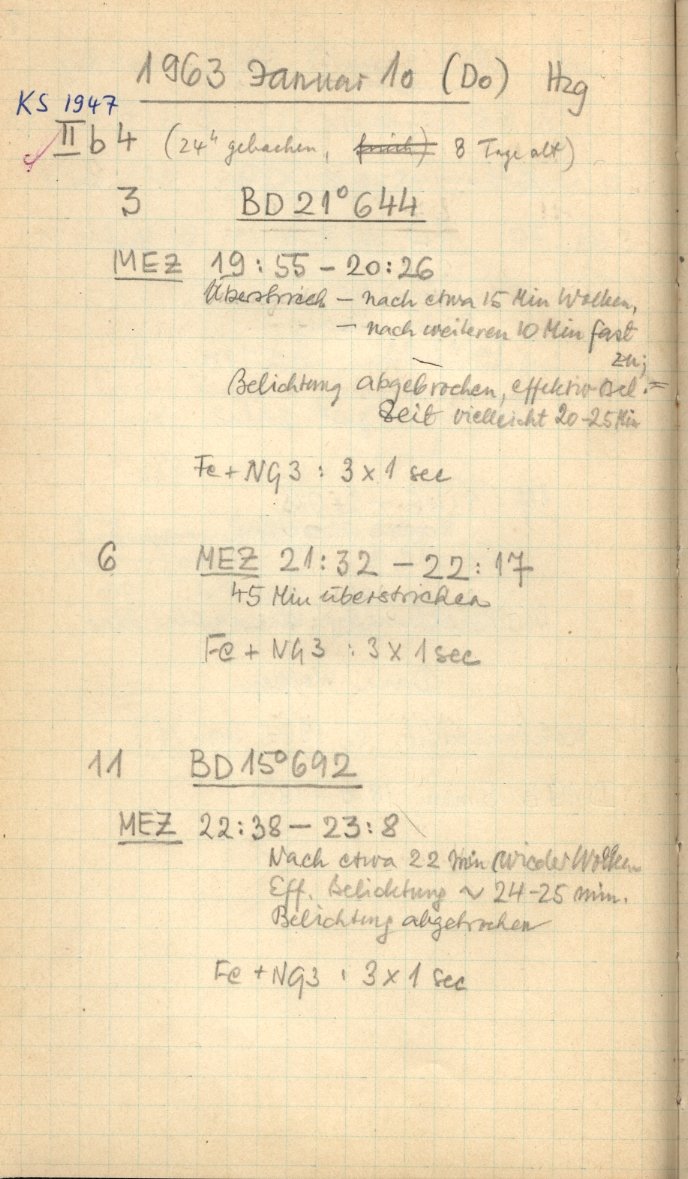 1963 Januar 10 (Do) Hzg
KS 1947
II b 4 (24h gebacken, frisch) 8 Tage alt)
3 BD 21° 644
MEZ 19:55 – 20:26
– nach etwa 15 Min Wolken,
– nach weiteren 10 Min fast
zu;
Belichtung abgebrochen, effektiv Bel.=
Zeit vielleicht 20–25 Min
Fe + NG3 : 3 x 1 sec
6 MEZ 21:32 – 22:17
45 Min überstrichen
Fe + NG3 : 3 x 1 sec
11 BD 15° 692
MEZ 22:38 – 23:8
Nach etwa 22 min wieder Wolken
Eff. Belichtung ~ 24–25 min.
Belichtung abgebrochen
Fe + NG3 : 3 x 1 sec